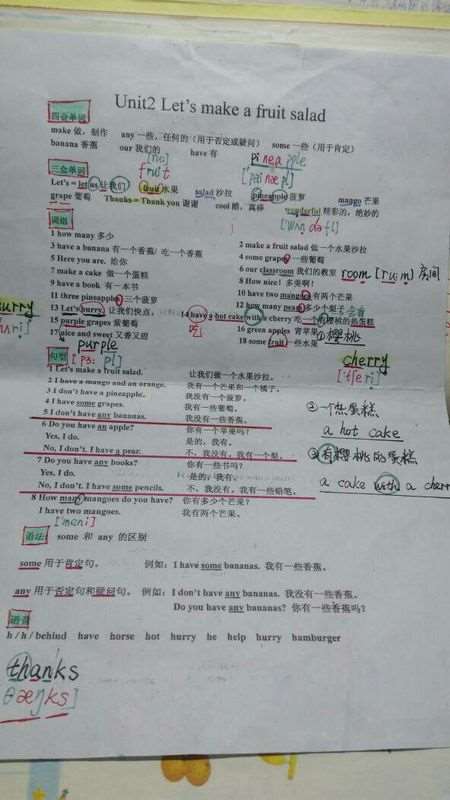 Unit2 Let's make a fruit salad
四会单词
make 做，制作 any 一些，任何的（用于否定或疑问） some 一些（用于肯定）
banana 香蕉 our 我们的 have 有
fruit
pineapple
三会单词
Let's = let us 让我们 fruit 水果 salad 沙拉 pineapple 菠萝 mango 芒果
grape 葡萄 Thanks = Thank you 谢谢 cool 酷，真棒 wonderful 精彩的，绝妙的
词组
1 how many 多少 2 make a fruit salad 做一个水果沙拉
3 have a banana 有一个香蕉/ 吃一个香蕉 4 some grapes 一些葡萄
5 Here you are. 给你 6 our classroom 我们的教室 room [ru:m] 房间
7 make a cake 做一个蛋糕 8 How nice! 多奥啊！
9 have a book 有一本书 10 have two mangoes 有两个芒果
11 three pineapples 三个菠萝 12 how many pears 多少个梨子
13 Let's hurry. 让我们快点。 14 have a hot cake with a cherry 吃一个有樱桃的热蛋糕
hurry
15 purple grapes 紫葡萄 16 green apples 青苹果 ①樱桃
17 nice and sweet 又香又甜 18 some fruit 一些水果
purple
cherry
句型
1 Let's make a fruit salad. 让我们做一个水果沙拉。
2 I have a mango and an orange. 我有一个芒果和一个橘子。
3 I don't have a pineapple. 我没有一个菠萝。 ②一个热蛋糕
4 I have some grapes. 我有一些葡萄。
5 I don't have any bananas. 我没有一些香蕉。 a hot cake
6 Do you have an apple? 你有一个苹果吗？
Yes, I do. 是的，我有。 ③有樱桃的蛋糕
No, I don't. I have a pear. 不，我没有，我有一个梨。
7 Do you have any books? 你有一些书吗？ a cake with a cherry
Yes, I do. 是的，我有。
No, I don't. I have some pencils. 不，我没有，我有一些铅笔。
8 How many mangoes do you have? 你有多少个芒果？
I have two mangoes. 我有两个芒果。
[meni]
语法: some 和 any 的区别
some 用于肯定句。 例如：I have some bananas. 我有一些香蕉。
any 用于否定句和疑问句。 例如：I don't have any bananas. 我没有一些香蕉。
Do you have any bananas? 你有一些香蕉吗？
语音
h / h / behind have horse hot hurry he help hurry hamburger
thanks
θæŋks